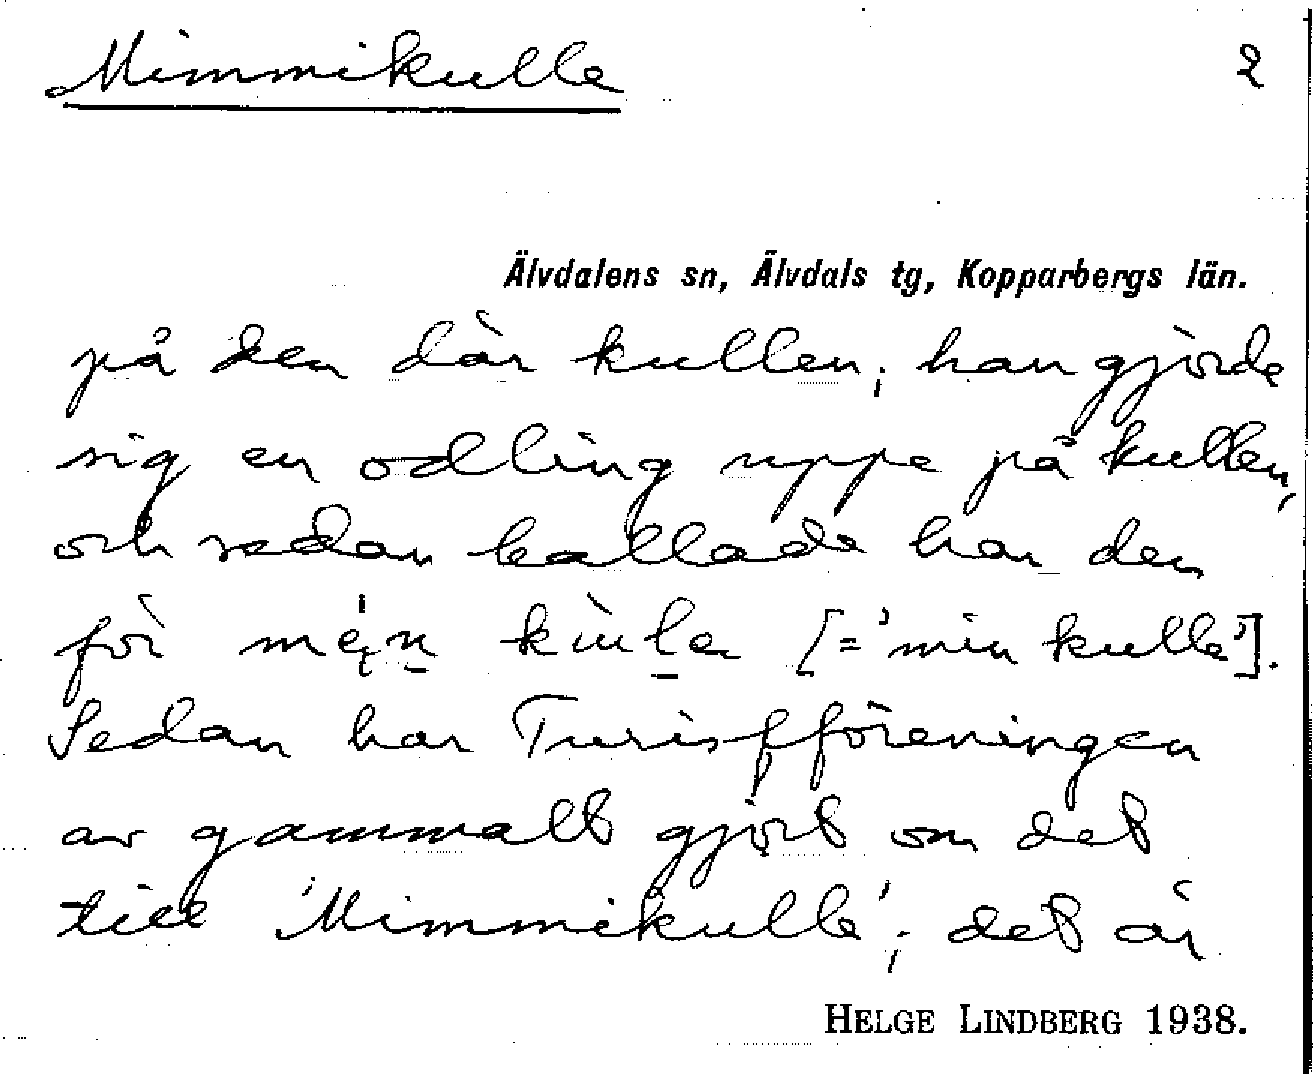 Mimmikulle 2
Älvdalens sn, Älvdals tg, Kopparbergs län.
på den där kullen; han gjorde
sig en odling uppe på kullen,
och sedan kallade han den
för [='min kulle'].
Sedan har Turistföreningen
av gammalt gjort om det
till 'Mimmikulle'; det är
HELGE LINDBERG 1938.